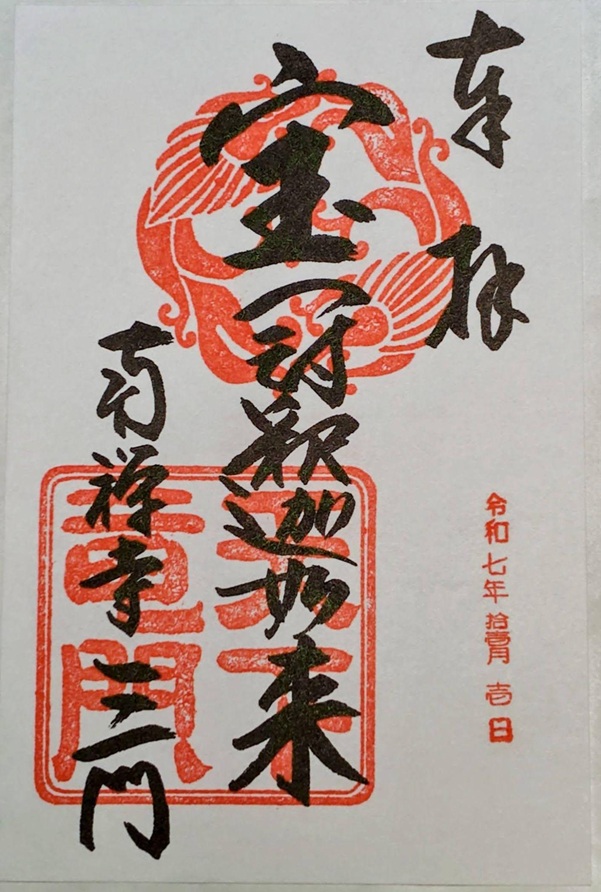 奉拝
宝冠釈迦如来
南禅寺三門
天下
竜門
令和七年拾壹月壱日